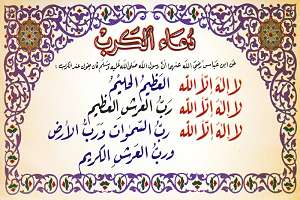 دعاء الكرب
عن ابن عباس رضي الله عنهما أن رسول الله صلى الله عليه وسلم كان يقول عند الكرب:
لا إله إلا الله العظيم الحليم
لا إله إلا الله رب العرش العظيم
لا إله إلا الله رب السموات ورب الأرض
ورب العرش الكريم